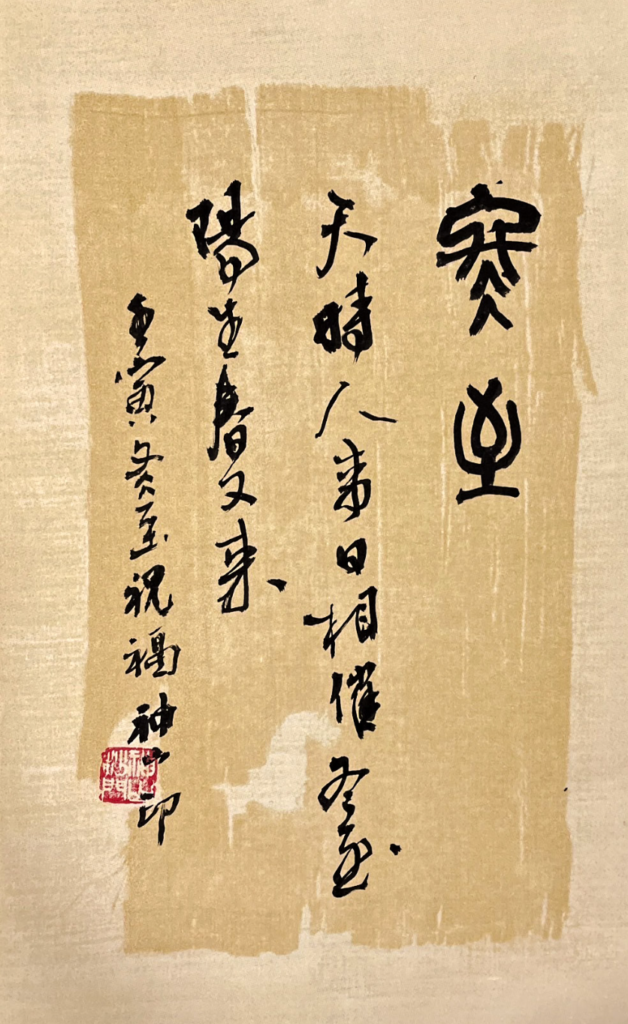 冬至
天時人事日相催冬至
陽生春又来
壬寅冬至祝福神山印